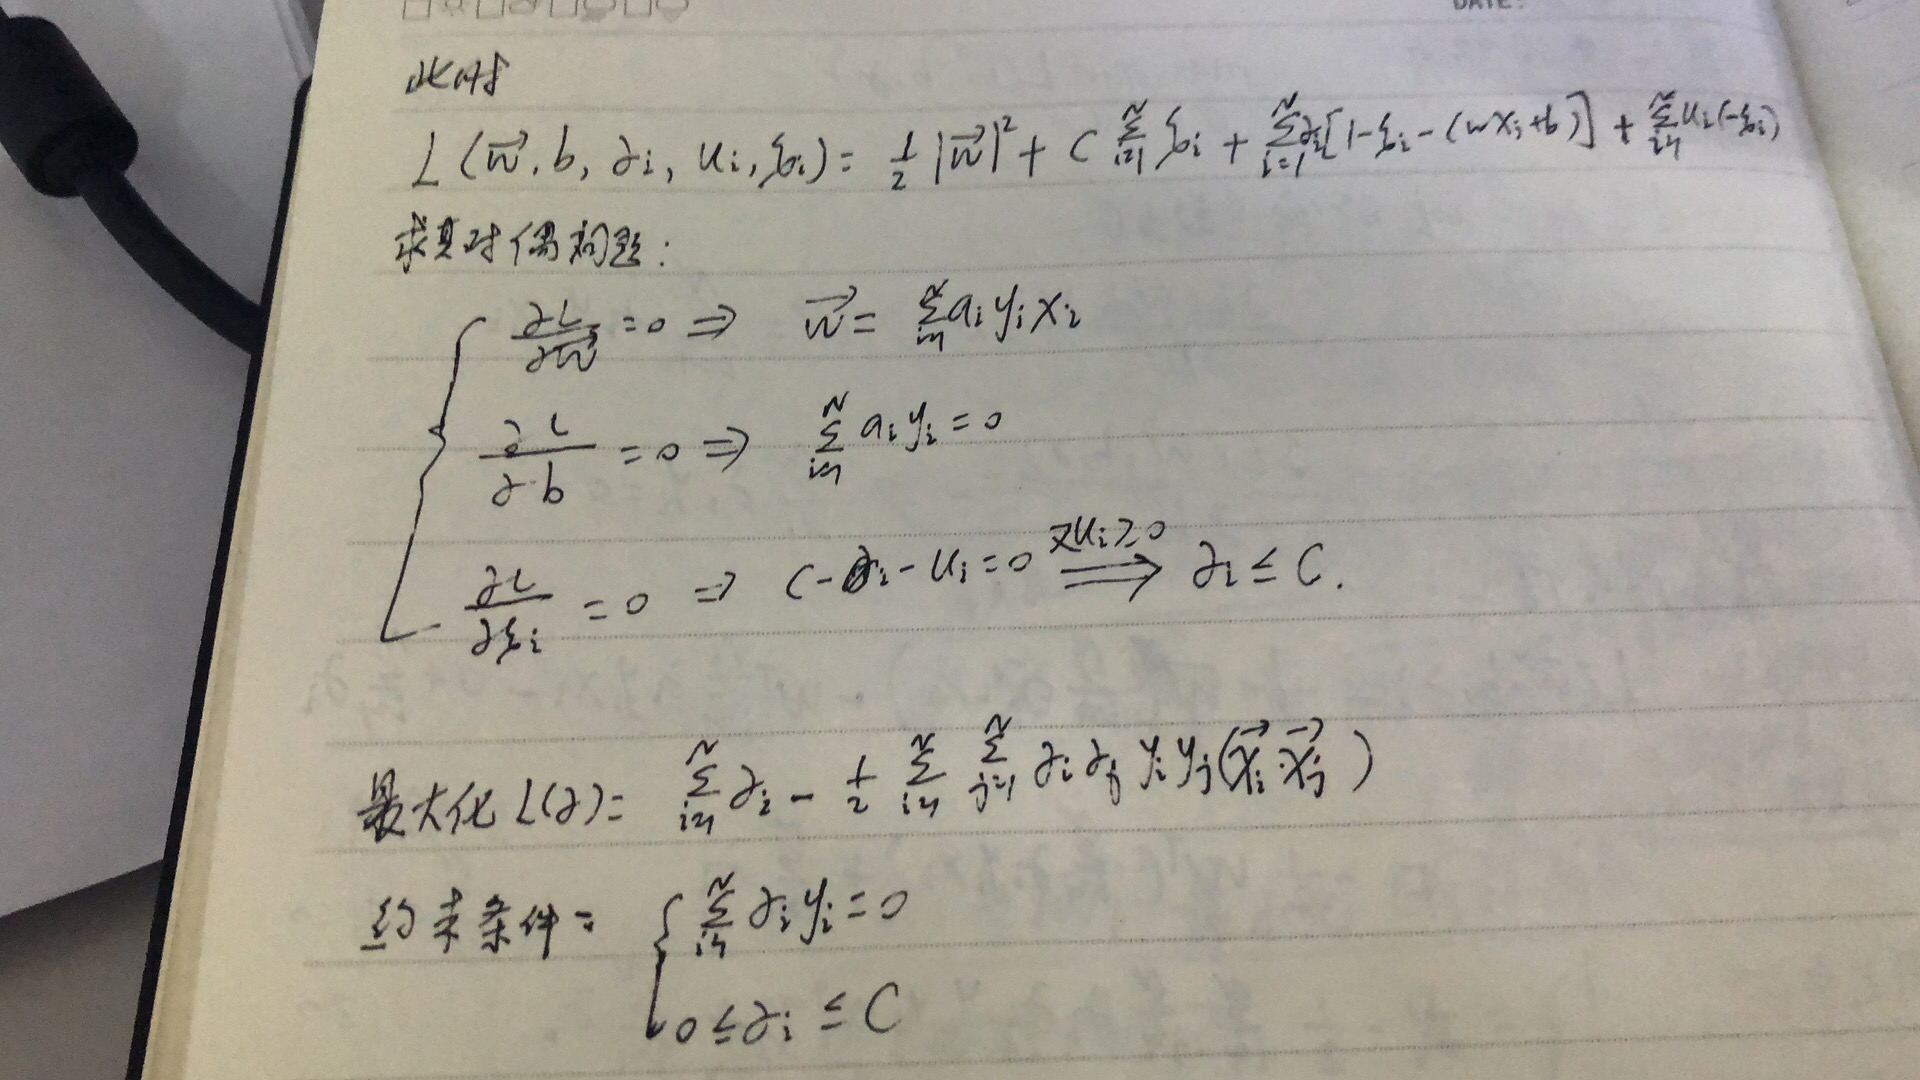 DATE:
此时
L(w⃗, b, ∂i, ui, ξi) = 1/2 |w⃗|² + C Σ_{i=1}^N ξi + Σ_{i=1}^N ∂i[1-ξi-(wxi+b)] + Σ_{i=1}^N ui(-ξi)
求其对偶问题:
∂L/∂w⃗ = 0 ⇒ w⃗ = Σ_{i=1}^N ai yi xi
∂L/∂b = 0 ⇒ Σ_{i=1}^N ai yi = 0
∂L/∂ξi = 0 ⇒ C-∂i-ui=0 又ui≥0 ⟹ ∂i ≤ C.
最大化 L(∂) = Σ_{i=1}^N ∂i - 1/2 Σ_{i=1}^N Σ_{j=1}^N ∂i ∂j yi yj (x⃗i·x⃗j)
约束条件: { Σ_{i=1}^N ∂i yi = 0
0 ≤ ∂i ≤ C